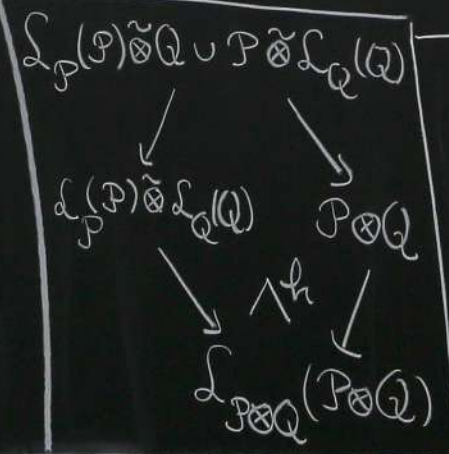 ℒ_𝒫(𝒫) ⊗̃ Q ∪ 𝒫 ⊗̃ ℒ_Q(Q)
ℒ_𝒫(𝒫) ⊗̃ ℒ_Q(Q) 𝒫⊗Q
h
ℒ_𝒫⊗Q(𝒫⊗Q)